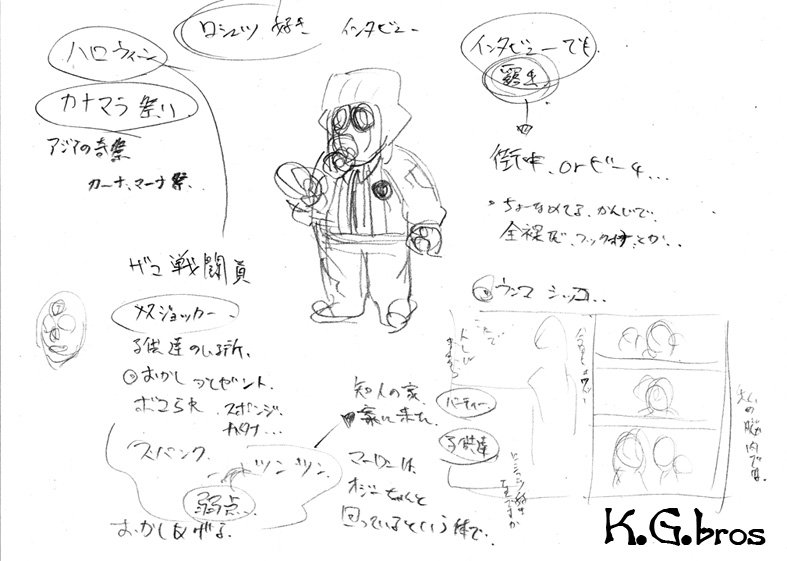 ハロウィーン
ロシュツ 好き インタビュー
インタビューでも
カナマラ祭り
アジアの奇祭
カーナ、マーナ祭、
街中、orビーチ...
ちょーなめてる、かんじで、
全裸で、フック とか、
ザコ戦闘員
メズジョッカー
子供達のいる所、
おかしプレゼント、
ボコられ スポンジ
カタナ...
スパンク
ツンツン、
弱点
おかしあげる、
知人の家、
家に来た、
マーローは、
オジーちゃんと
回っているという体で、
ウンコ シッコ...
パーティー
子供達
の脳内では、
K.G.bros